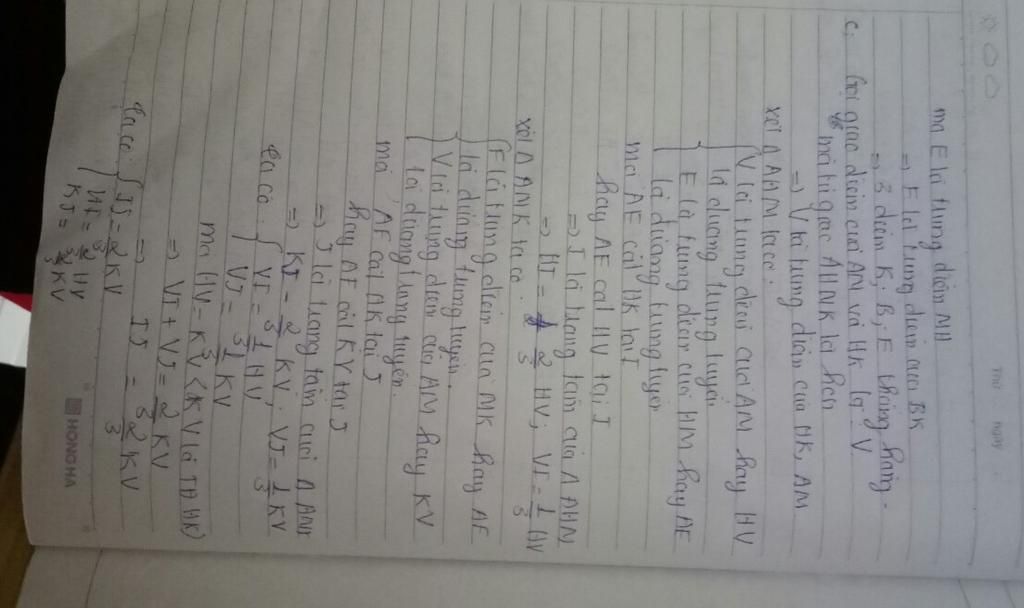 Thứ ngày
mà E là trung điểm MH
⇒ E là trung điểm của BK
⇒ 3 điểm K, B, E thẳng hàng.
c, Gọi giao điểm của AM và HK là V
mà tứ giác AHMK là hcn
⇒ V là trung điểm của HK, AM
xét Δ AHM ta có:
{ V là trung điểm của AM hay HV
là đường trung tuyến
{ E là trung điểm của HM hay AE
là đường trung tuyến
mà AE cắt HK tại I
hay AE cắt HV tại I
⇒ I là trọng tâm của Δ AHM
⇒ HI = 2/3 HV; VI = 1/3 HV
xét Δ AMK ta có:
{ F là trung điểm của MK hay AF
là đường trung tuyến.
{ V là trung điểm của AM hay KV
là đường trung tuyến.
mà AF cắt HK tại J
hay AF cắt KV tại J
⇒ J là trọng tâm của Δ AMK
⇒ KJ = 2/3 KV; VJ = 1/3 KV
Ta có: { VI = 1/3 HV
VJ = 1/3 KV
mà HV = KV (V là TĐ HK)
⇒ VI + VJ = 2/3 KV
⇒ IJ = 2/3 KV
Ta có: { IJ = 2/3 KV
HI = 2/3 HV
KJ = 2/3 KV
HONG HA